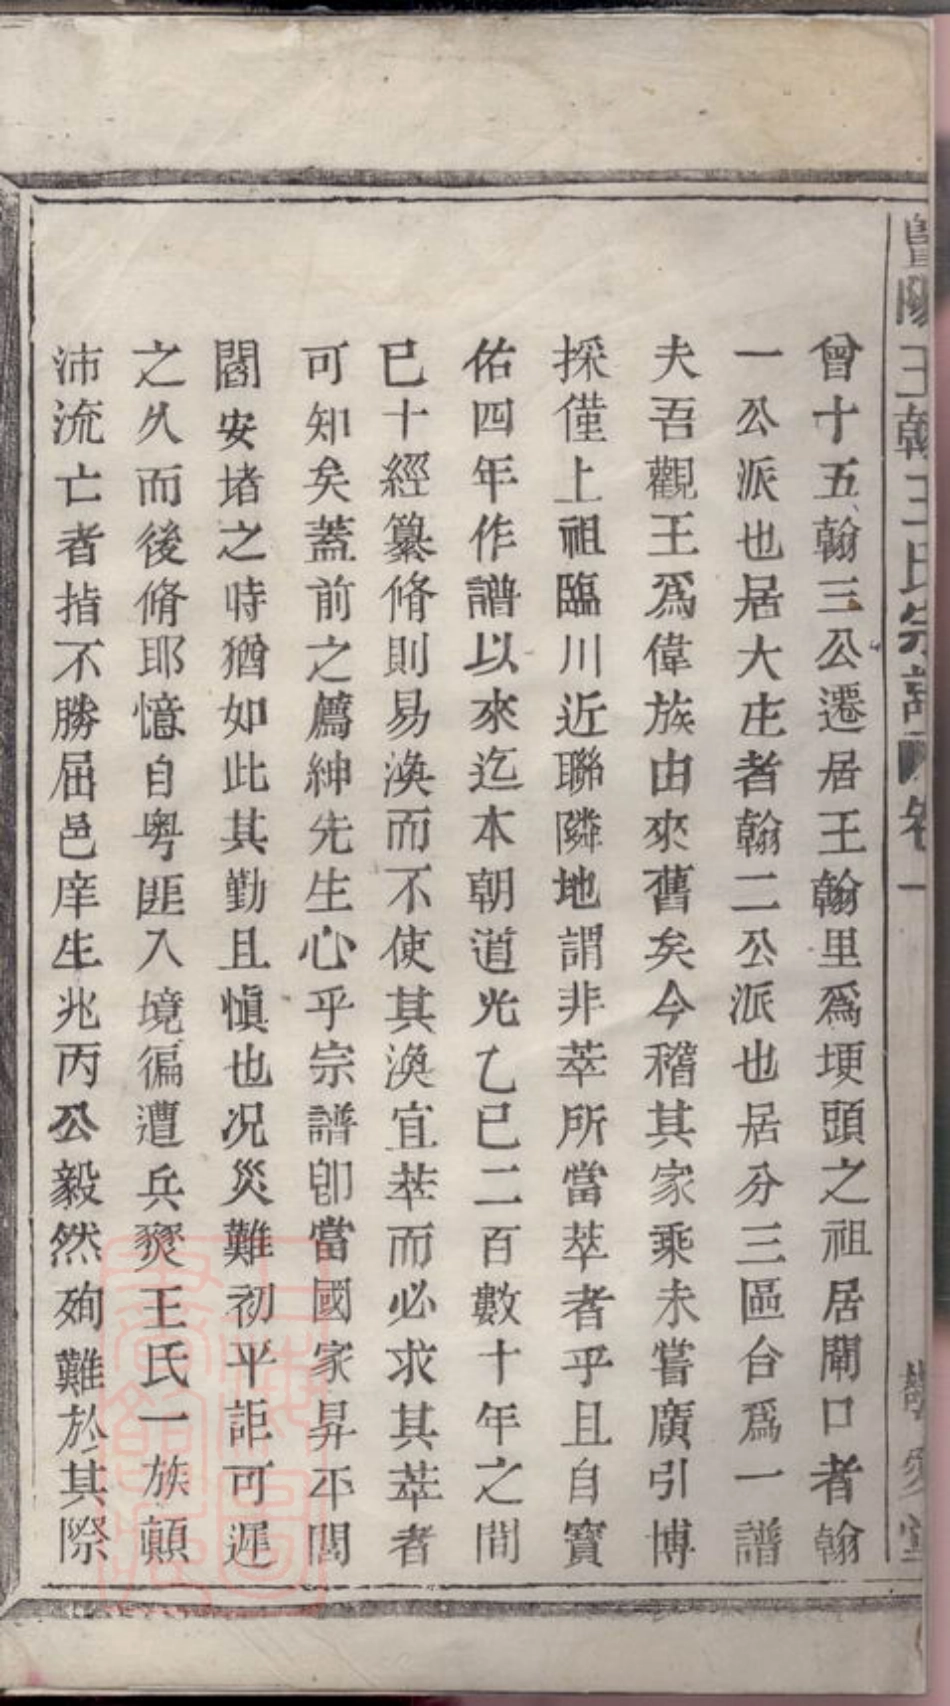 暨陽王翰王氏宗譜 卷一 堂
曾十五翰三公遷居王翰里爲埂頭之祖居閘口者翰
一公派也居大庄者翰二公派也居分三區合爲一譜
夫吾觀王爲偉族由來舊矣今稽其家乘未嘗廣引博
採僅上祖臨川近聯隣地謂非萃所當萃者乎且自寶
佑四年作譜以來迄本朝道光乙巳二百數十年之間
已十經纂脩則易渙而不使其渙宜萃而必求其萃者
可知矣蓋前之薦紳先生心乎宗譜卽當國家昇平閭
閻安堵之時猶如此其勤且愼也况災難初平詎可遲
之久而後脩耶憶自粤匪入境徧遭兵燹王氏一族顛
沛流亡者指不勝屈邑庠生兆丙公毅然殉難於其際